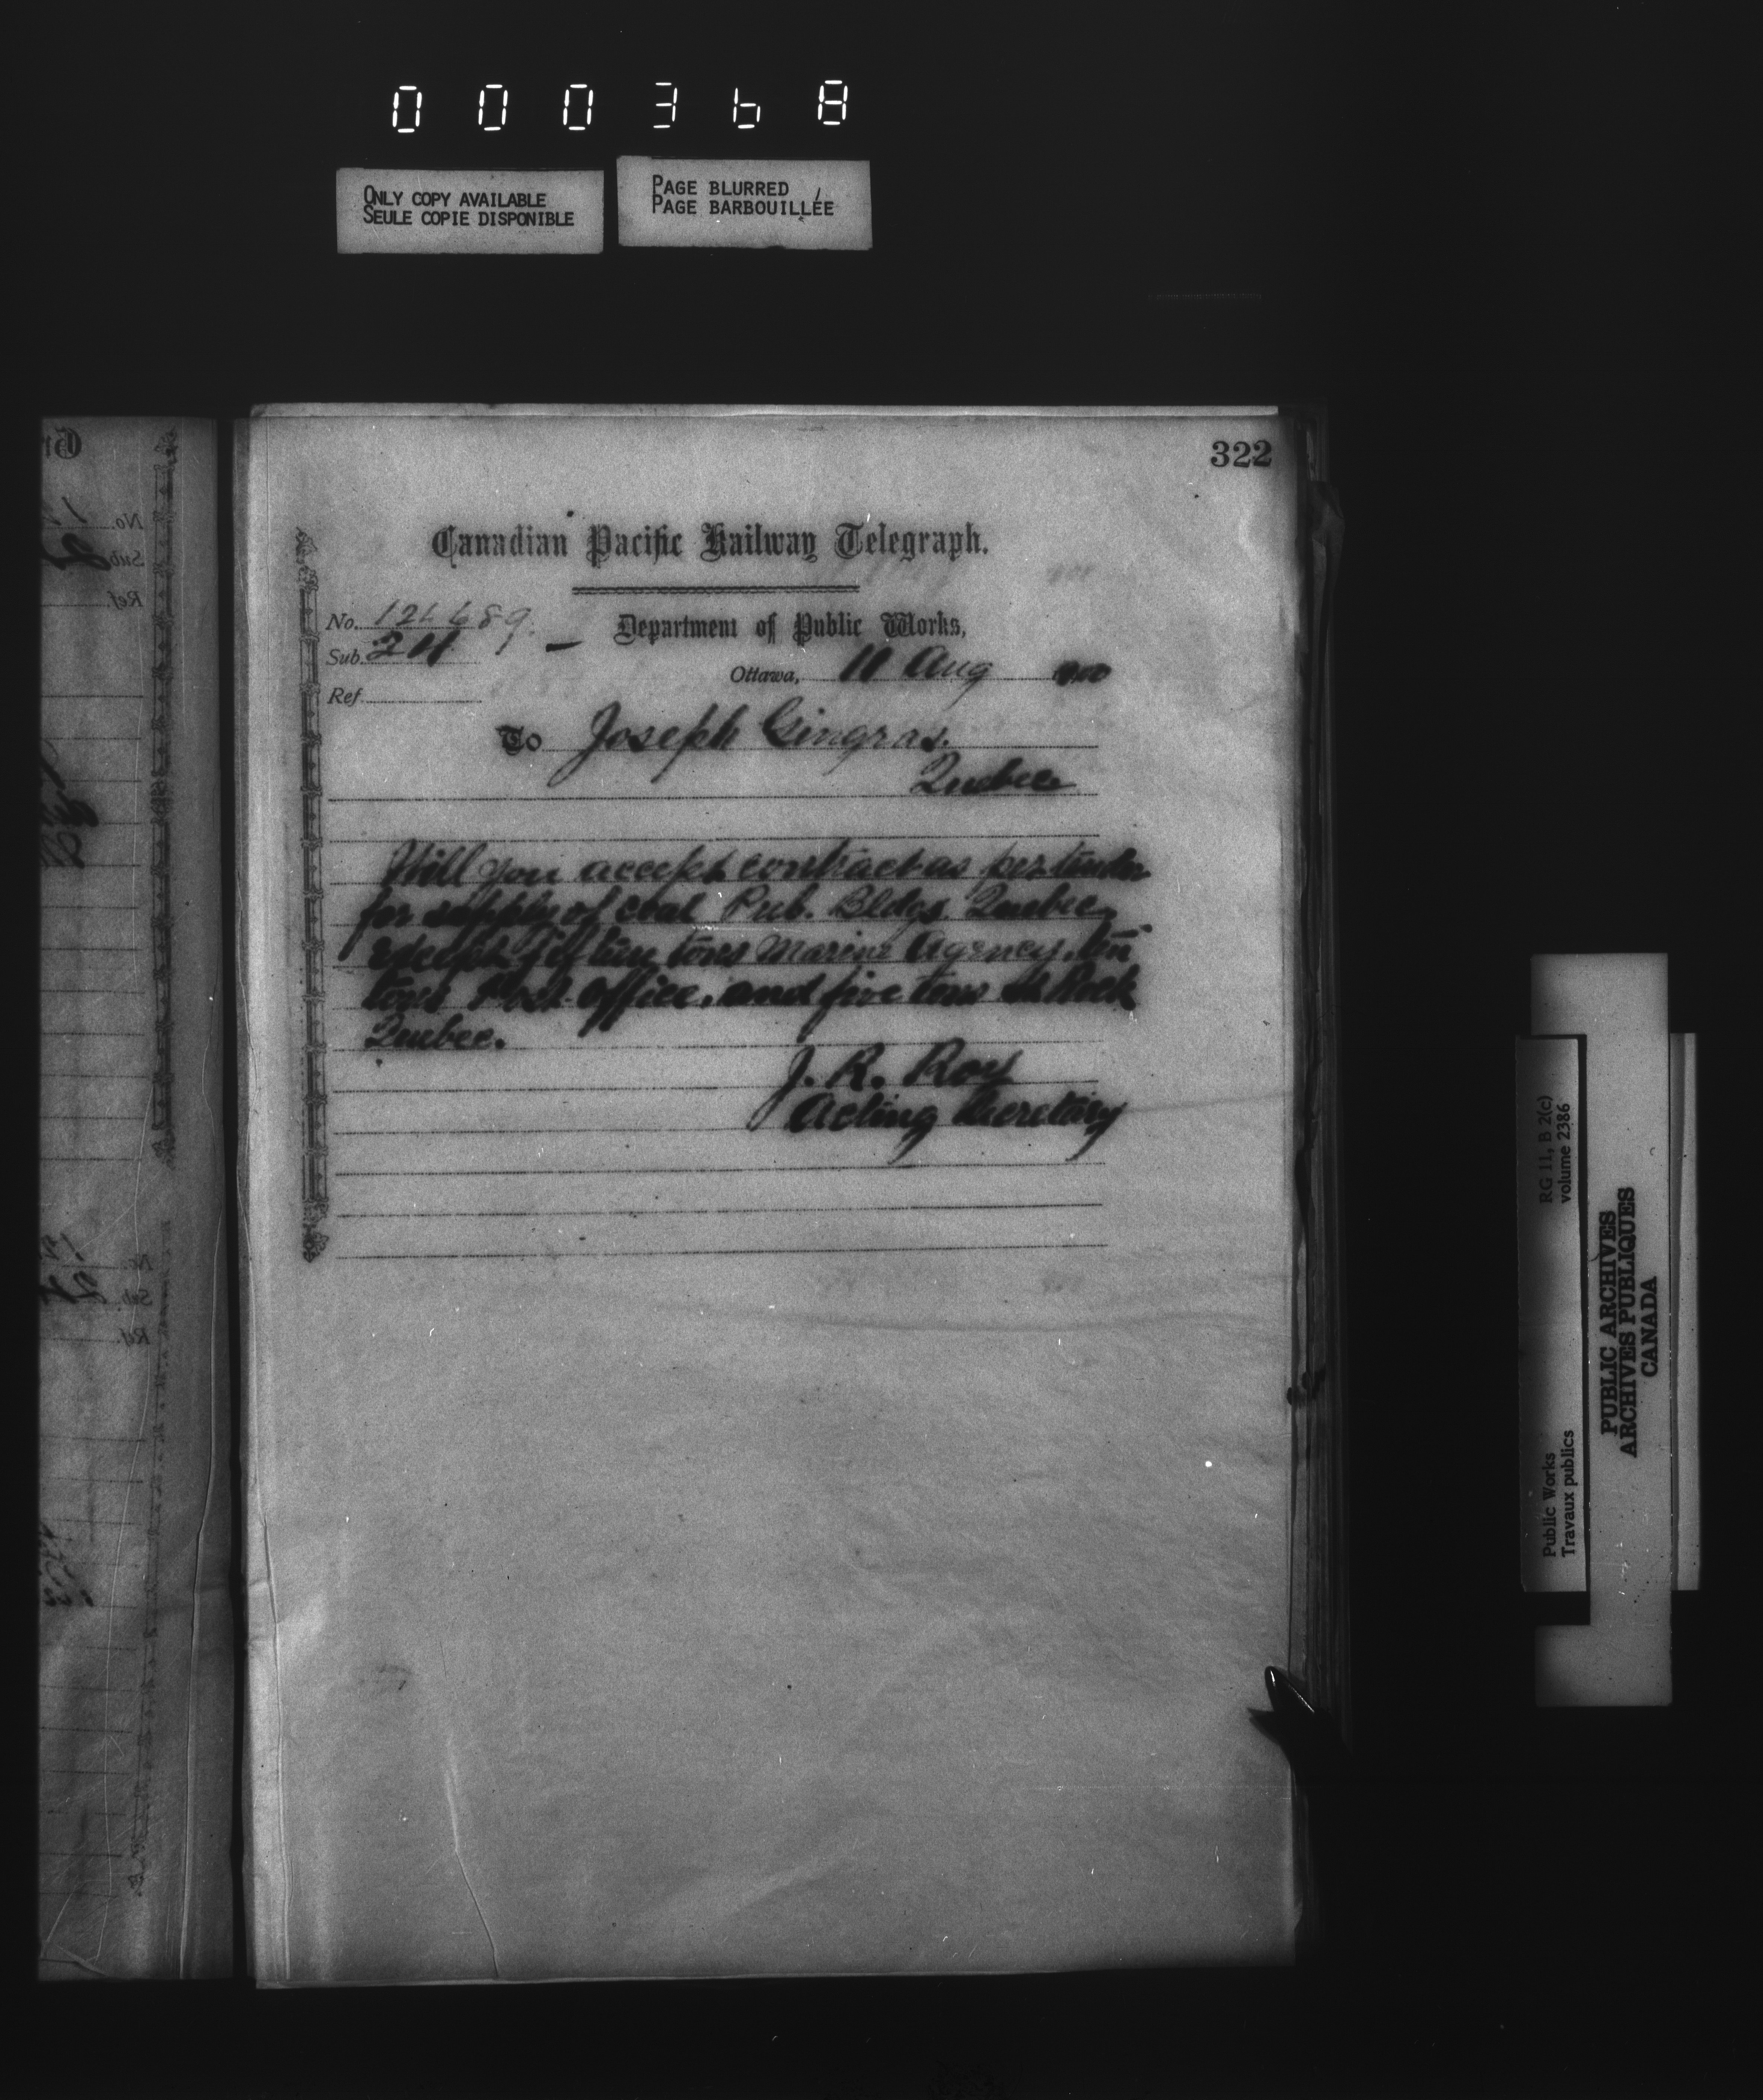 000368
ONLY COPY AVAILABLE
SEULE COPIE DISPONIBLE
PAGE BLURRED
PAGE BARBOUILLÉE
322
Canadian Pacific Railway Telegraph.
No. 124689.
Department of Public Works,
Sub. 24
Ottawa, 11 Aug 900
Ref.
To Joseph Gingras.
Quebec
Will you accept contract as per tender
for supply of coal Pub. Bldgs. Quebec
except fifteen tons Marine Agency, ten
tons Post Office, and five tons St Rock
Quebec.
J. R. Roy
Acting Secretary
RG 11, B 2(c)
volume 2386
Public Works
Travaux publics
PUBLIC ARCHIVES
ARCHIVES PUBLIQUES
CANADA
No.
Sub.
Ref.
No.
Sub.
Ref.